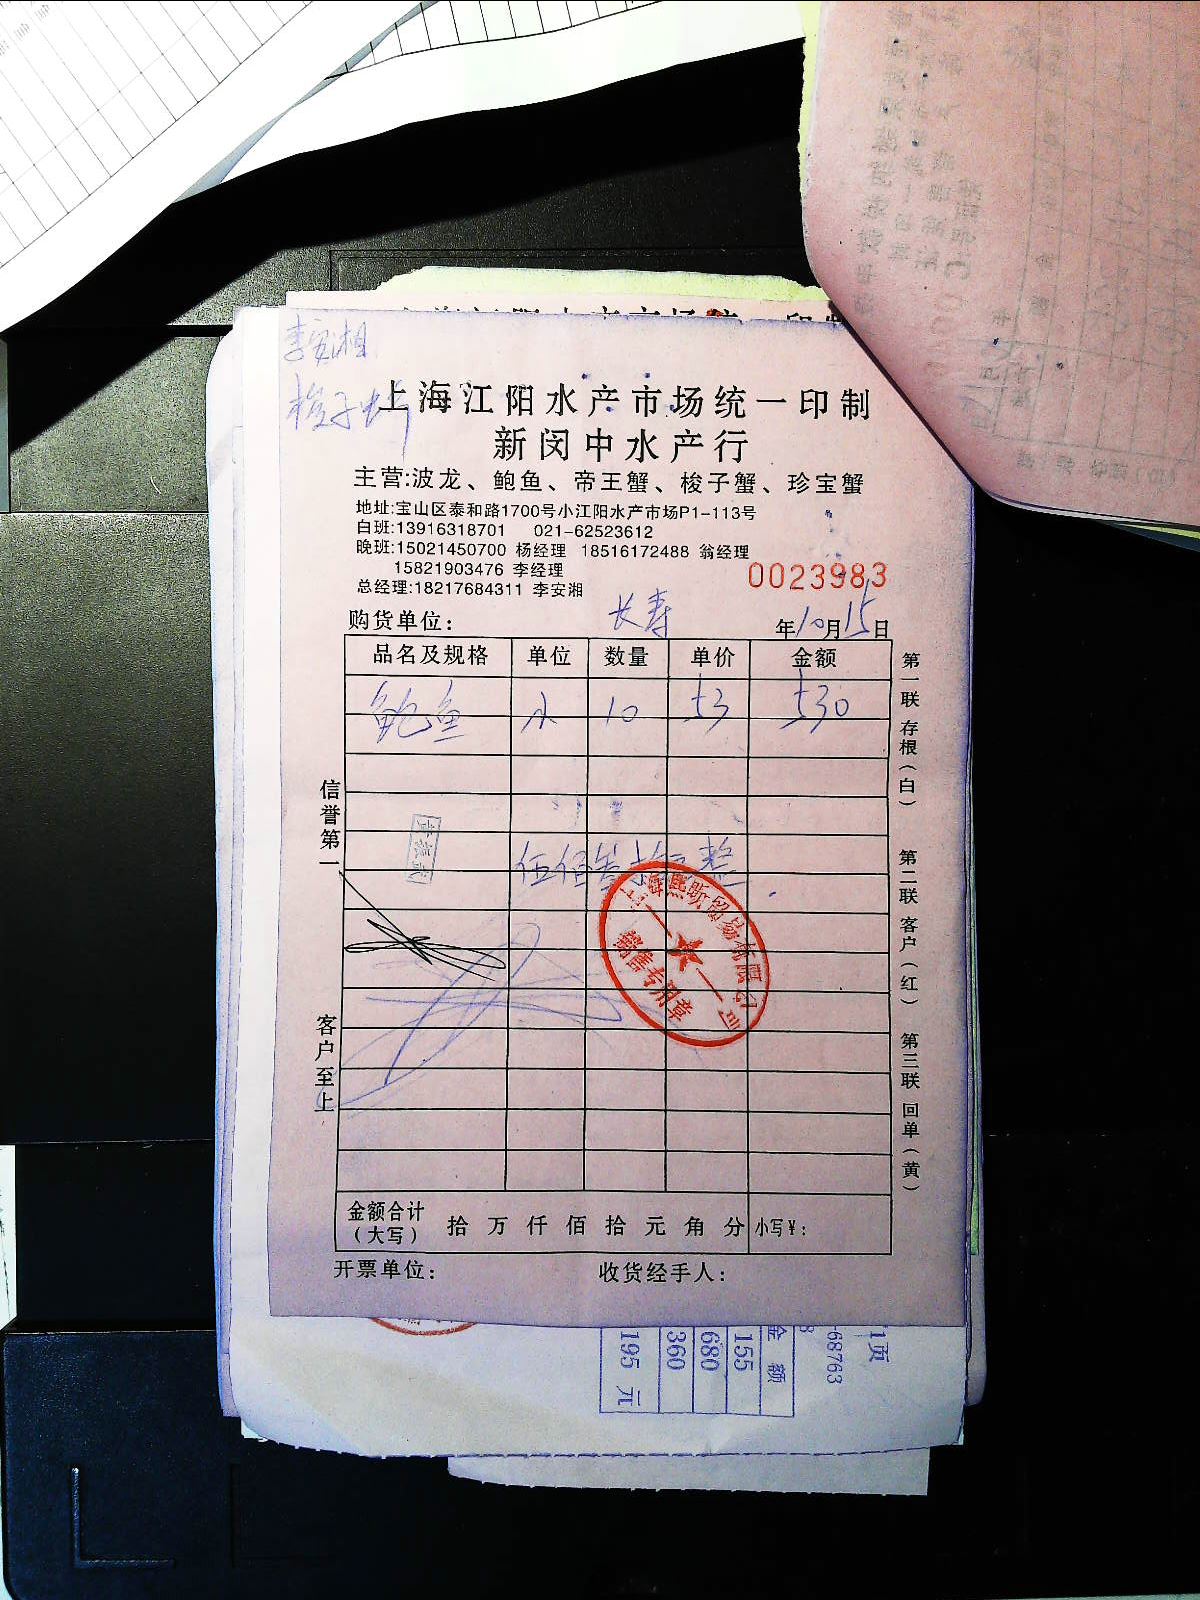 李安湘
梭子蟹
上海江阳水产市场统一印制
新闵中水产行
主营:波龙、鲍鱼、帝王蟹、梭子蟹、珍宝蟹
地址:宝山区泰和路1700号小江阳水产市场P1-113号
白班:13916318701 021-62523612
晚班:15021450700 杨经理 18516172488 翁经理
15821903476 李经理
总经理:18217684311 李安湘
0023983
购货单位: 长寿 年10月15日
品名及规格 单位 数量 单价 金额
鲍鱼 10 53 530
伍佰叁拾元整
上海熙昕贸易有限公司
销售专用章
信誉第一
客户至上
第一联 存根(白)
第二联 客户(红)
第三联 回单(黄)
金额合计(大写) 拾 万 仟 佰 拾 元 角 分 小写¥:
开票单位: 收货经手人:
1页
-68763
金 额
155
680
360
195 元